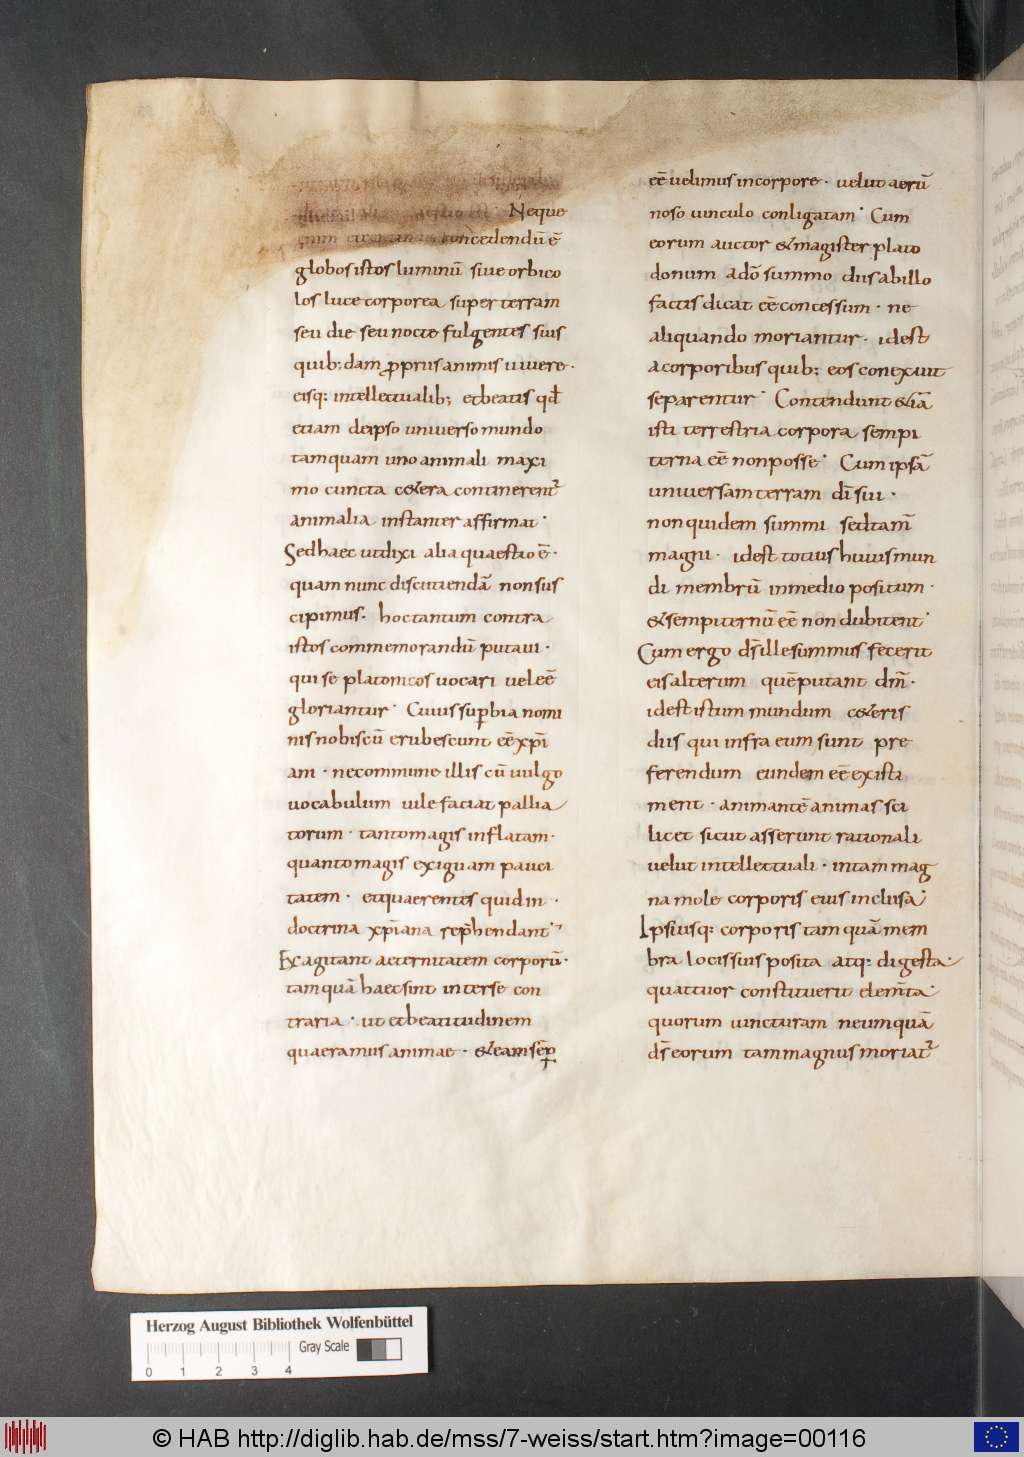 Neque
concedendū ē
globos istos luminū siue orbico
los luce corporea super terram
seu die seu nocte fulgentes suis
quib; dam ꝓpriis animis uiuere.
eisq: intellectualib; et beatis qđ
etiam de ipso uniuerso mundo
tamquam uno animali maxi
mo cuncta c&era continerent᷑
animalia instanter affirmat·
Sed haec ut dixi alia quaestio ē·
quam nunc discutiendā non sus
cipimus. hoc tantum contra
istos commemorandū putaui·
qui se platonicos uocari uel eē
gloriantur· Cuius suꝑbia nomi
nis nobiscū erubescunt eē xp̄i
ani· ne commune illis cū uulgo
uocabulum uile faciat pallia
torum· tanto magis inflatam·
quanto magis exiguam pauci
tatem· et quaerentes quid in·
doctrina xp̄iana rep̄hendant·
Exagitant aeternitatem corporū·
tamquā haec sint inter se con
traria· ut et beatitudinem
quaeramus animae· & eam sēꝑ
eē uelimus in corpore· uelut aerū
noso uinculo conligatam· Cum
eorum auctor & magister plato
donum a dō summo diis ab illo
factis dicat eē concessum· ne
aliquando moriantur· id est
a corporibus quib: eos conexuit
separentur· Contendunt &iā
isti terrestria corpora sempi
terna eē non posse· Cum ipsā
uniuersam terram dī sui·
non quidem summi sed tam̄
magni· id est totius huius mun
di membrū in medio positum·
& sempiternū eē non dubitent·
Cum ergo ds̄ ille summus fecerit
eis alterum quē putant dm̄·
id est istum mundum c&eris
diis qui infra eum sunt pre
ferendum eundem eē existi
ment· animantē animas sci
licet sicut asserunt rationali
uelut intellectuali· in tam mag
na mole corporis eius inclusa·
Ipsiusq: corporis tamquā mem
bra locis suis posita atq: digesta·
quattuor constituerit elem̄ta·
quorum uincturam ne umquā
ds̄ eorum tam magnus moriat᷑
Herzog August Bibliothek Wolfenbüttel
Gray Scale
0 1 2 3 4
© HAB http://diglib.hab.de/mss/7-weiss/start.htm?image=00116